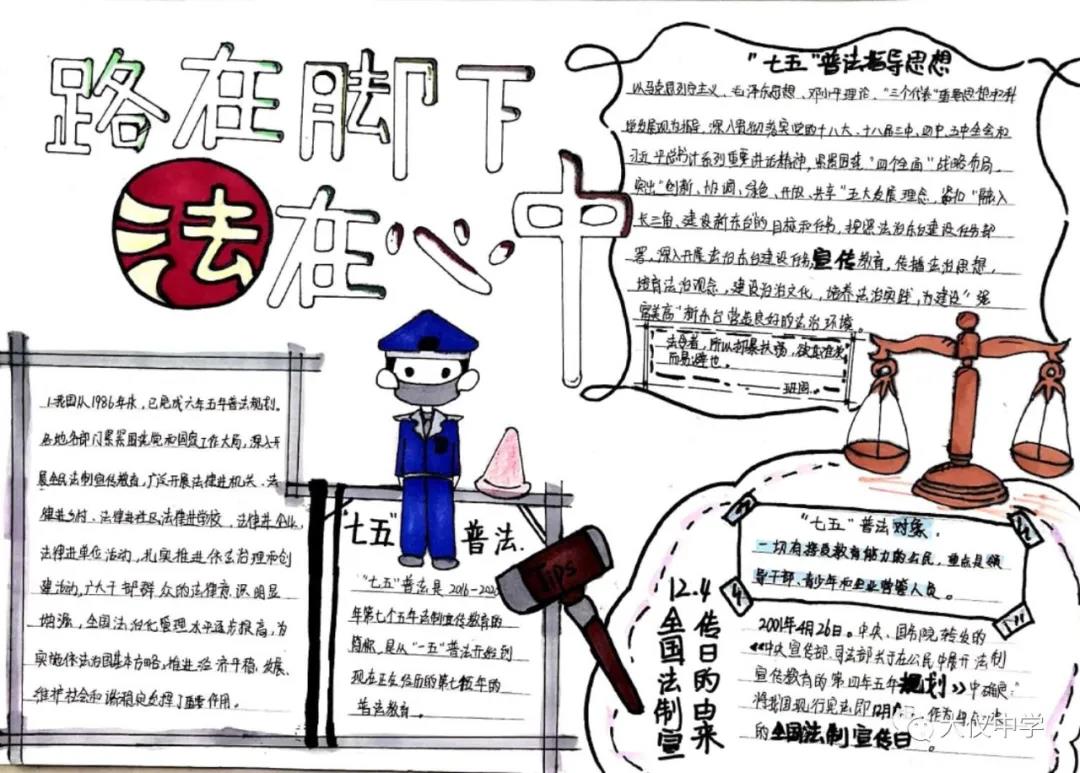 路在脚下
法在心中
"七五"普法指导思想
以马克思列宁主义、毛泽东思想、邓小平理论、"三个代表"重要思想和科
学发展观为指导，深入贯彻落实党的十八大、十八届三中、四中、五中全会和
习近平总书记系列重要讲话精神，紧紧围绕"四个全面"战略布局，
突出"创新、协调、绿色、开放、共享"五大发展理念，紧扣"融入
长三角、建设新东台的目标和任务，按照法治东台建设任务部
署，深入开展法治东台建设任务宣传教育，传播法治思想，
培育法治观念，建设法治文化，培养法治实践，为建设"强
富美高"新东台营造良好的法治环境。
法令者，所以抑暴扶弱，欲其难犯
而易避也。
班固
1.我国从1986年来，已完成六年五年普法规划。
各地各部门紧紧围绕党和国家工作大局，深入开
展全民法制宣传教育，广泛开展法律进机关、法
律进乡村、法律进社区法律进学校，法律进企业
法律进单位活动，扎实推进依法治理和创
建活动，广大干部群众的法律意识明显
增强，全国法治化管理水平逐步提高，为
实施依法治国基本方略，推进经济平稳发展、
维护社会和谐稳定发挥了重要作用。
"七五"普法.
"七五"普法是2016-202
年第七个五年法制宣传教育的
简称，是从"一五"普法开始到
现在正在经历的第七个五年的
普法教育。
Tips
"七五"普法对象：
一切有接受教育能力的公民，重点是领
导干部、青少年和企业经营管人员。
12.4
全国法制宣
传日的由来
2001年4月26日。中央、国务院转发的
《中央宣传部司法部关于在公民中展开法制
宣传教育的第四年五年规划》中确定："
将我国现行宪法即12月
的全国法制宣传日。
大仪中学